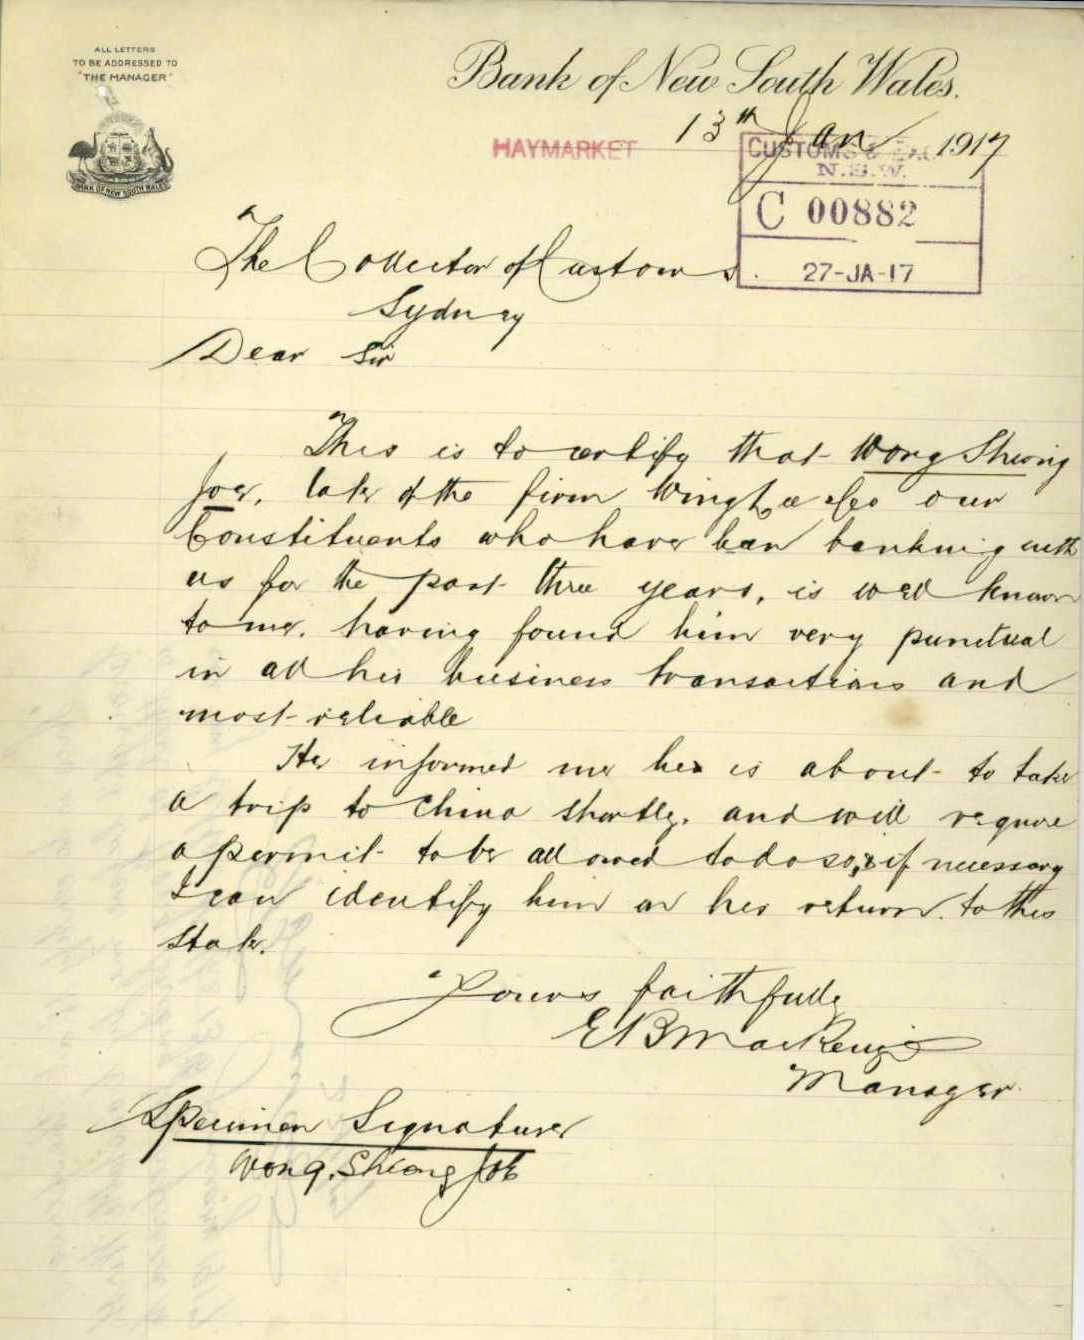 ALL LETTERS
TO BE ADDRESSED TO
"THE MANAGER"
BANK OF NEW SOUTH WALES
Bank of New South Wales.
HAYMARKET
13th Jan 1917
CUSTOMS &
N.S.W.
C 00882
27-JA-17
The Collector of Customs.
Sydney
Dear Sir
This is to certify that Wong Sheong
Joe, late of the firm Wing Lee & Co our
Constituents who have been banking with
us for the past three years, is well known
to me. having found him very punctual
in all his business transactions and
most reliable
He informed me he is about to take
a trip to China shortly. and will require
a permit to be allowed to do so, & if necessary
I can identify him on his return to this
State.
Yours faithfully
E B MacKenzie
Manager
Specimen Signature
Wong. Sheong Joe